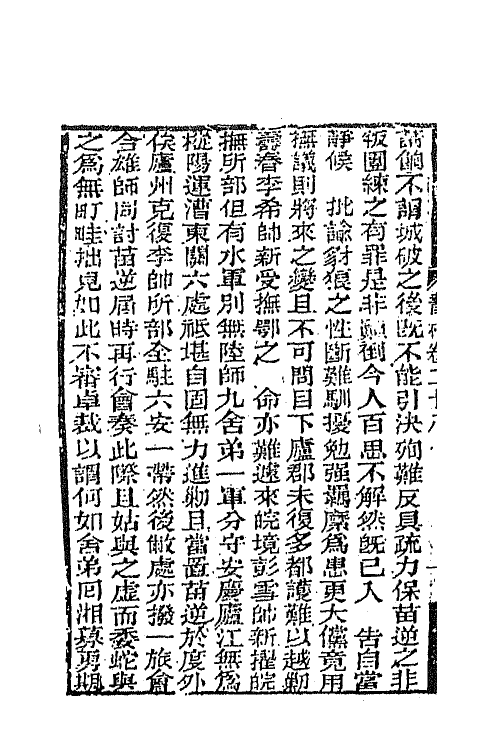 請餉不謂城破之後旣不能引決殉難反具疏力保苗逆之非
叛團練之有罪是非顚倒令人百思不解然旣已入　告自當
靜候　批諭豺狼之性斷難馴擾勉强羈縻爲患更大儻竟用
撫議則將來之變且不可問目下廬郡未復多都護難以越勦
壽春李希帥新受撫鄂之　命亦難遽來皖境彭雪帥新擢皖
撫所部但有水軍別無陸師九舍弟一軍分守安慶廬江無爲
樅陽運漕東關六處祗堪自固無力進勦且當置苗逆於度外
俟廬州克復李帥所部全駐六安一帶然後敝處亦撥一旅會
合雄師同討苗逆屆時再行會奏此際且姑與之虛而委蛇與
之爲無町畦拙見如此不審卓裁以謂何如舍弟囘湘募勇期